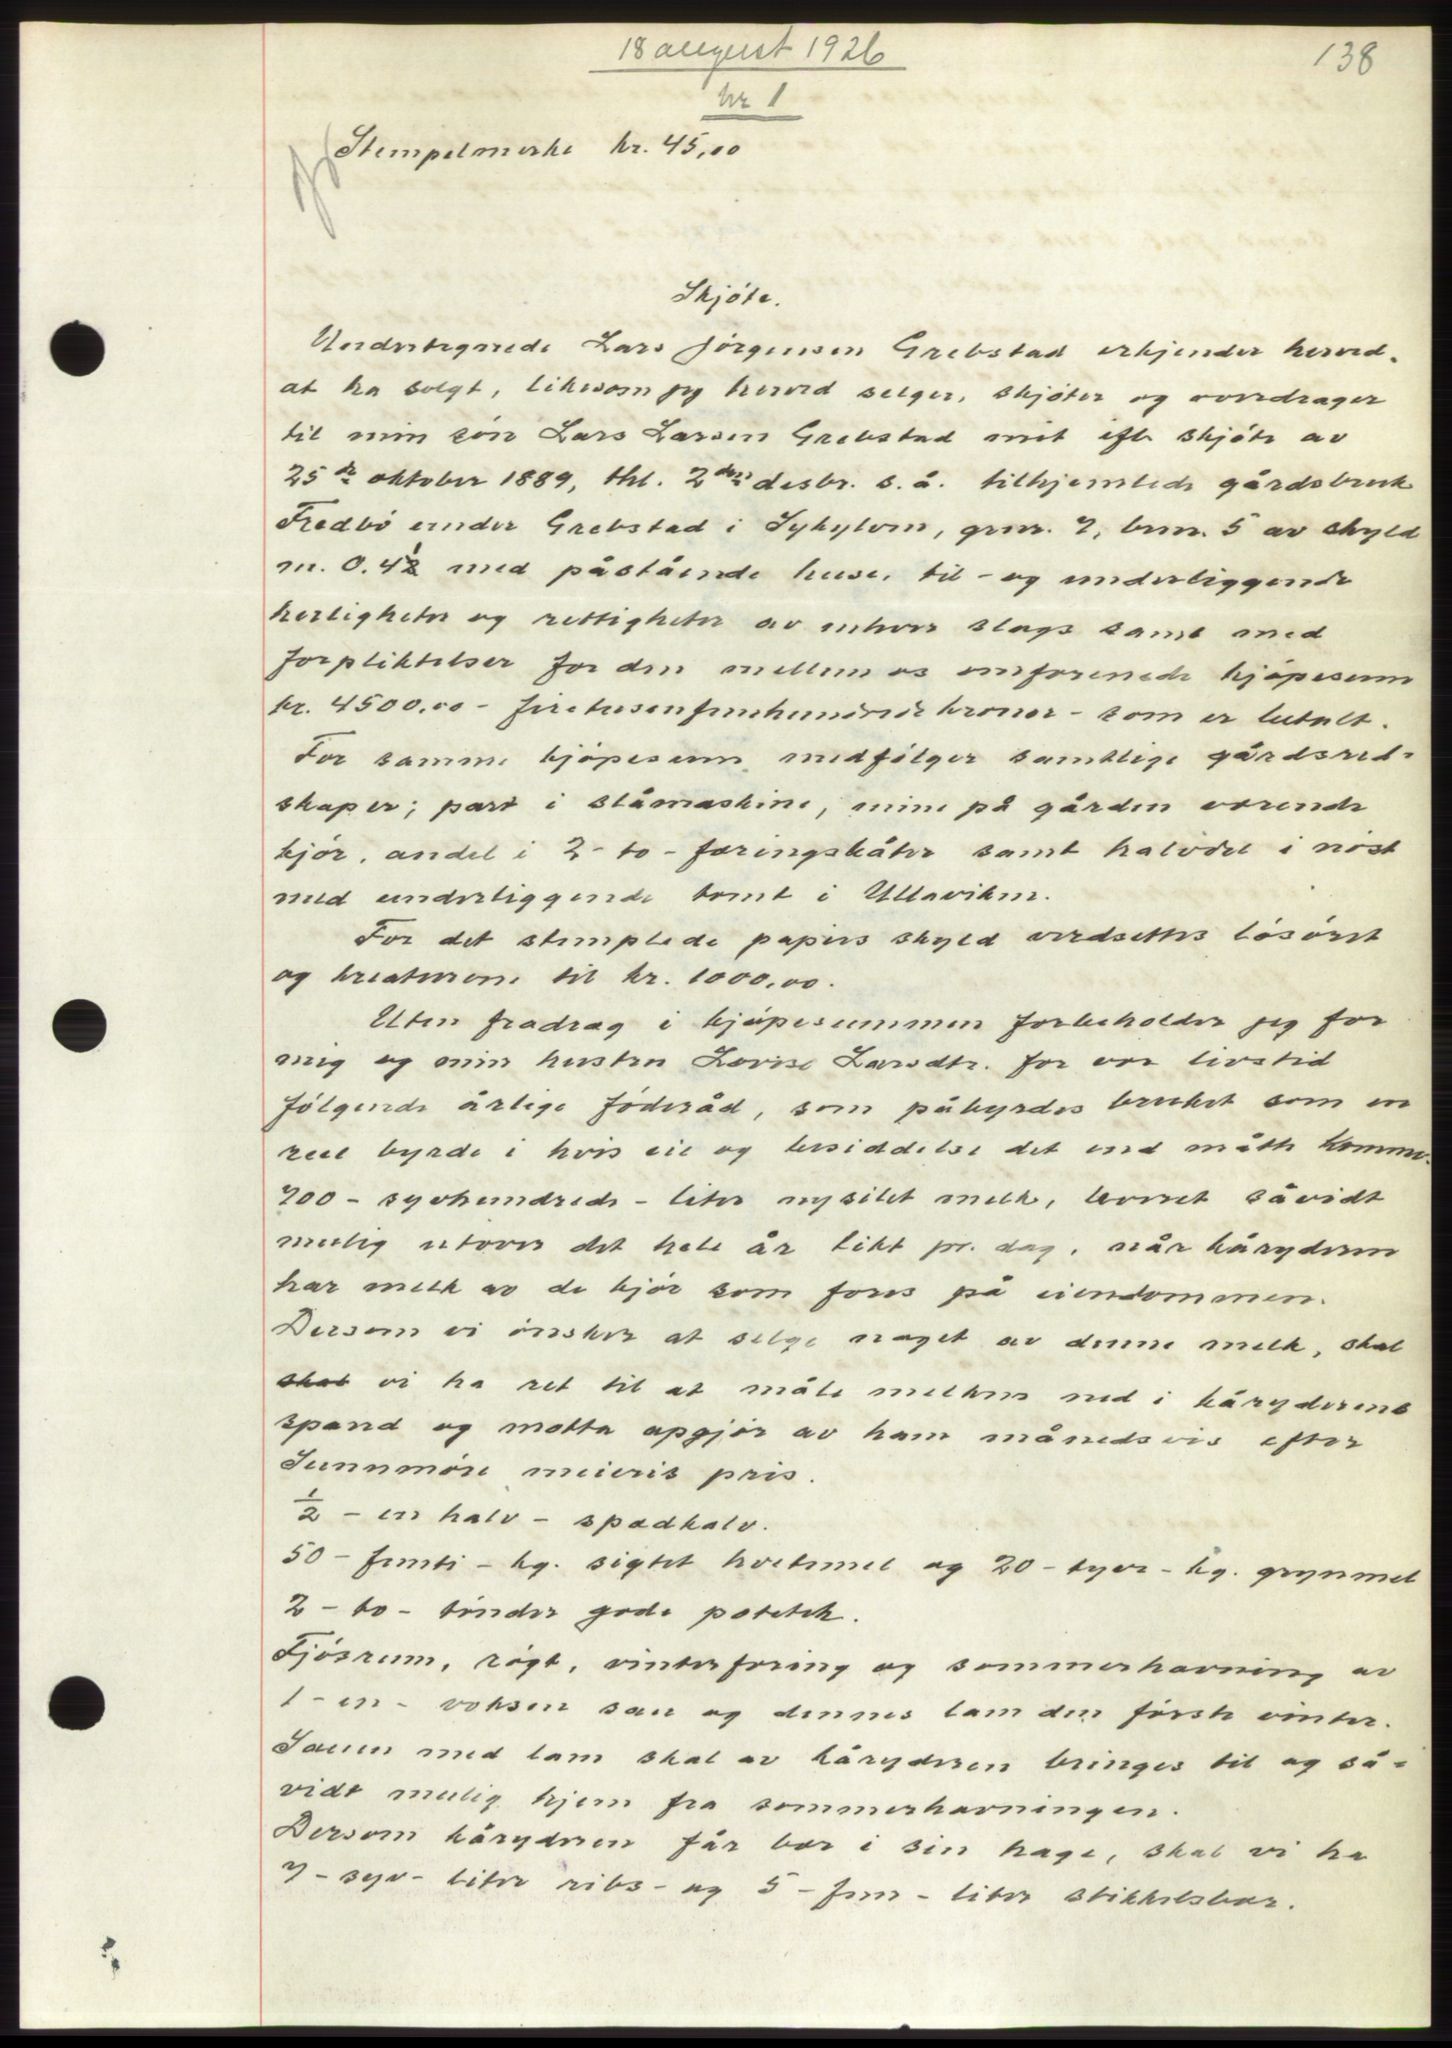 18 august 1926
138
Nr 1
Stempelmerke kr. 45,00
Skjöte.
Undertegnede Lars Jörgensen Grebstad erkjender herved
at ha solgt, likesom jeg herved selger, skjöter og overdrager
til min sön Lars Larsen Grebstad mit ifl. skjöte av
25de oktober 1889, thl. 2den desbr. s.å. tilhjemlede gårdsbruk
Fredbö under Grebstad i Sykylven, grnr. 7, brnr. 5 av skyld
m. 0.42 med påstående huse, til - og underliggende
herligheter og rettigheter av enhver slags samt med
forpliktelser for den mellem os omforenede kjöpesum
kr. 4500,00 - firetusenfemhundrede kroner - som er betalt.
For samme kjöpesum medfölger samtlige gårdsred-
skaper; part i slåmaskine, mine på gården værende
kjör, andel i 2 - to - færingsbåter samt halvdel i nöst
med underliggende tomt i Ullaviken.
For det stemplede papirs skyld verdsettes lösöret
og kreaturene til kr. 1000,00.
Uten fradrag i kjöpesummen forbeholder jeg for
mig og min hustru Lovise Larsdtr. for vor livstid
fölgende årlige föderåd, som påhyrdes bruket som en
reel byrde i hvis eie og besiddelse det end måtte komme.
700 - syvhundrede - liter nysilet melk, leveret såvidt
mulig utover det hele år likt pr. dag, når kåryderen
har melk av de kjör som fores på eiendommen.
Dersom vi önsker at selge noget av denne melk, skal
skal vi ha ret til at måle melken ned i kåryderens
spand og motta opgjör av ham månedsvis efter
Sunnmöre meieris pris.
1/2 - en halv - spædkalv.
50 - femti - kg. sigtet hvetemel og 20 - tyve - kg. grynmel
2 - to - tönder gode potetek.
Fjösrum, rögt, vinterforing og sommerhavning av
1 - en - voksen sau og dennes lam den förste vinter.
Sauen med lam skal av kåryderen bringes til og så-
vidt mulig hjem fra sommerhavningen.
Dersom kåryderen får bær i sin hage, skal vi ha
7 - syv - liter ribs - og 5 - fem - liter stikkelsbær.